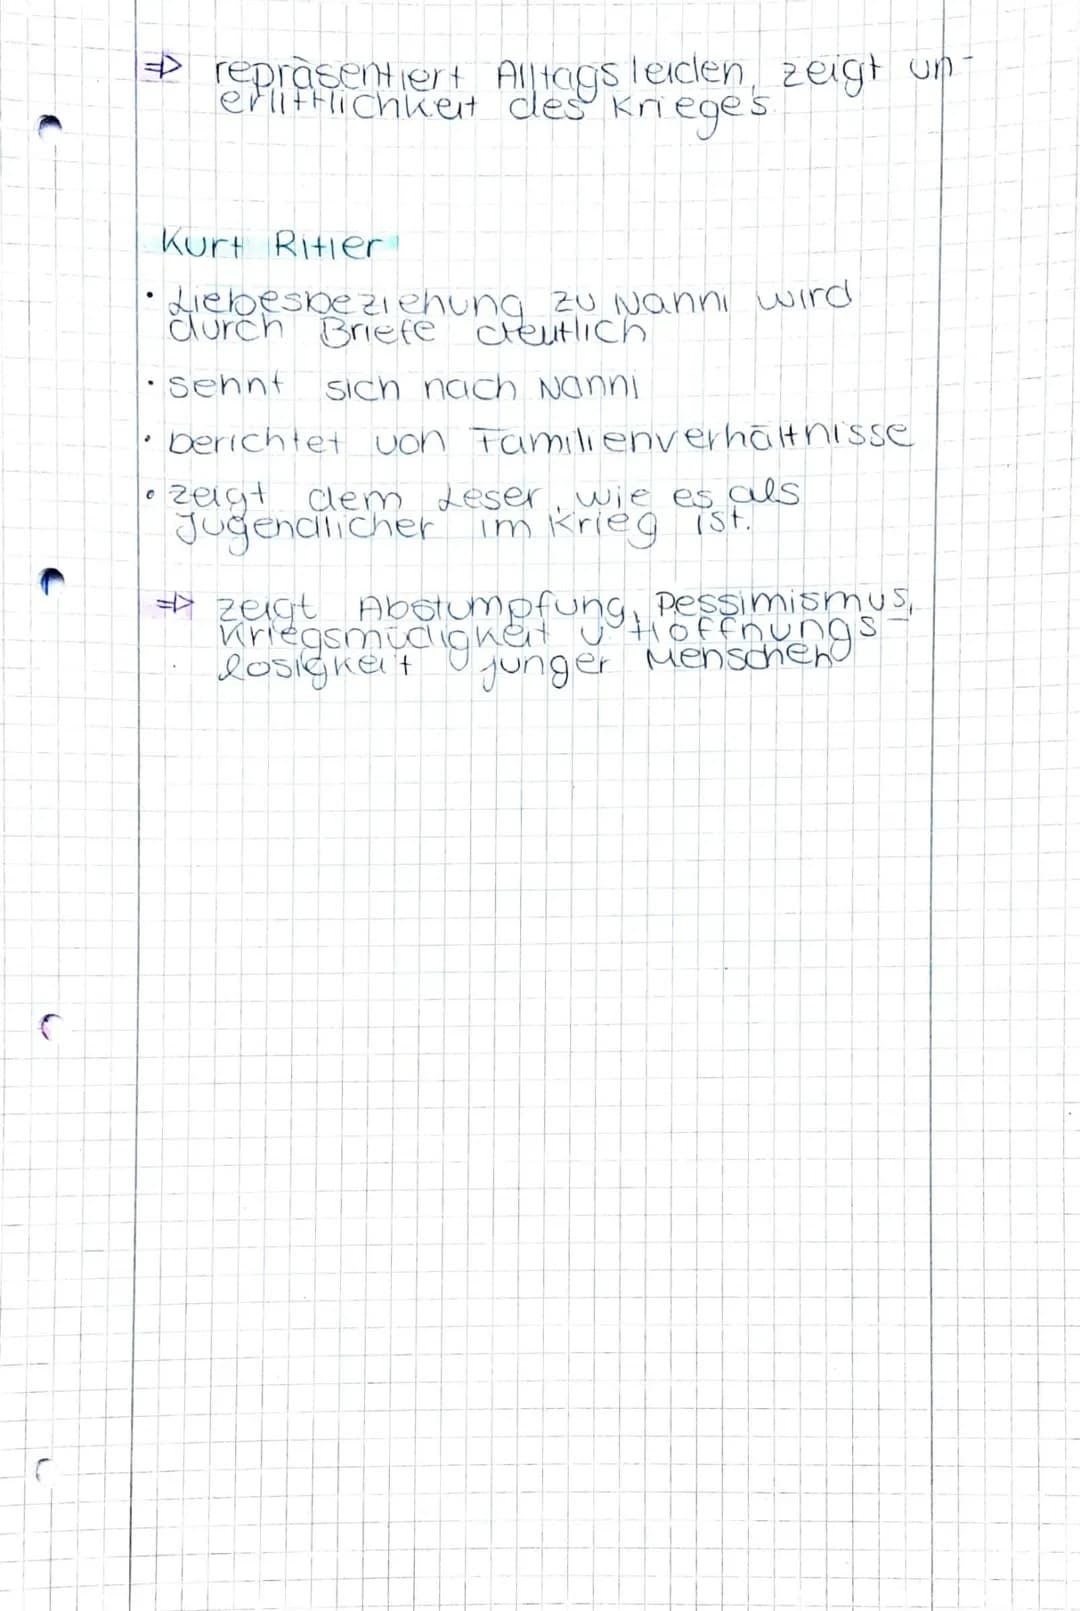 ⇒ repräsentiert Alltagsleiden, zeigt un-
erlittlichkeit des Krieges.
Kurt Ritler
• Liebesbeziehung zu Nanni wird
durch Briefe deutlich
• sehnt sich nach Nanni
• berichtet von Familienverhältnisse
• zeigt dem Leser, wie es als
Jugendlicher im Krieg ist.
⇒ zeigt Abstumpfung, Pessimismus,
Kriegsmüdigkeit u Hoffnungs-
losigkeit junger Menschen